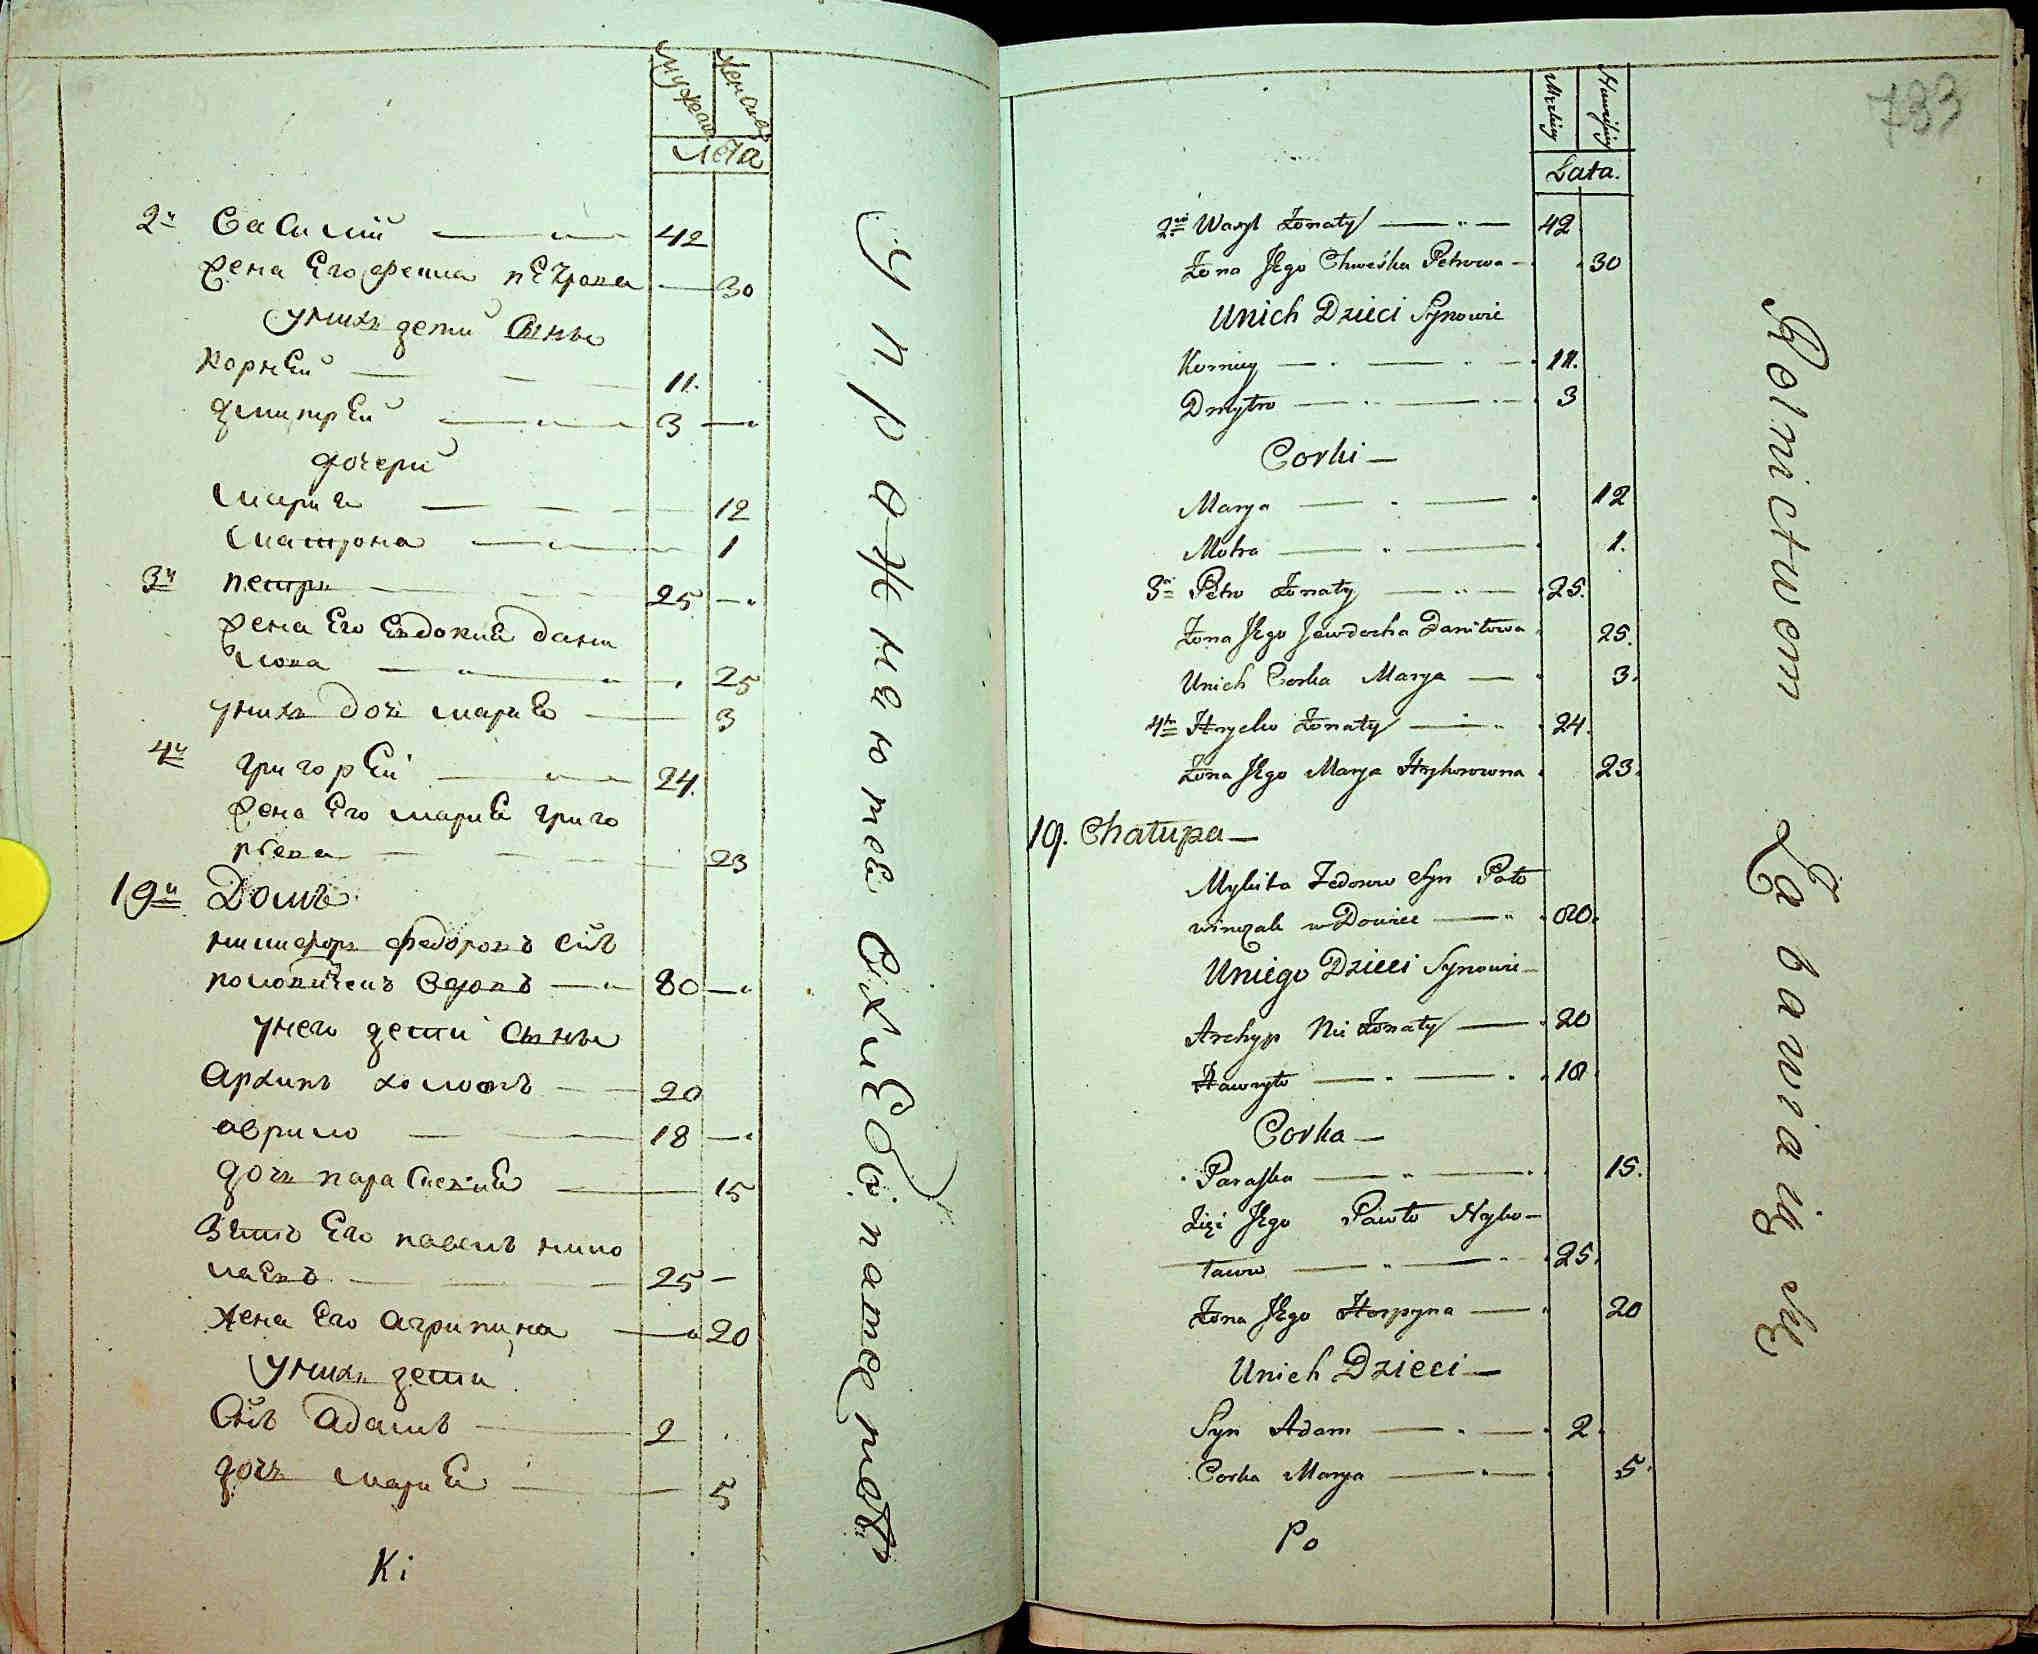 мужеск женска
лета
2й Василий 42
жена Его фенна пЕтрова 30
у нихъ дети Сыны
корнЕй 11.
дмитрЕй 3
дочери
мария 12
матрона 1
3й петръ 25
жена Его Евдокия дани
лова 25
унихъ дочь мария 3
4й григорЕй 24.
жена Его мария григо
рьева 23
19й Домъ
никифоръ федоровъ сынъ
половинчакъ вдовъ 80
унего дети Сыны
Архипъ холостъ 20
аврило 18
дочь параскевия 15
Зять Его павелъ нико
лаевъ 25
жена Его Агрипина 20
унихъ дети
Сынъ Адамъ 2
дочь мария 5
Ki
упражняются
хлебопашеством
733
Męskiey
Lata.
2gi Wasyl Żonaty 42
Żona Jego Chweśka Petrowa 30
Unich Dzieci Synowie
Korniey 11.
Dmytro 3
Corki
Marya 12
Motra 1.
3ci Petro Żonaty 25.
Żona Jego Jewdocha Daniłowa 25.
Unich Corka Marya 3.
4ty Hryćko Żonaty 24.
Żona Jego Marya Hryhorowna 23.
19. Chałupa
Mykita Fedorow Syn Poło
winczak wDowiec 80.
Uniego Dzieci Synowie
Archyp Nie Żonaty 20
Hawryło 18.
Corka
Paraska 15.
Zięć Jego Pawło Nyko-
łaiow 25.
Żona Jego Horpyna 20
Unich Dzieci
Syn Adam 2.
Corka Marya 5.
Po
Rolnictwem Zabawiaią się